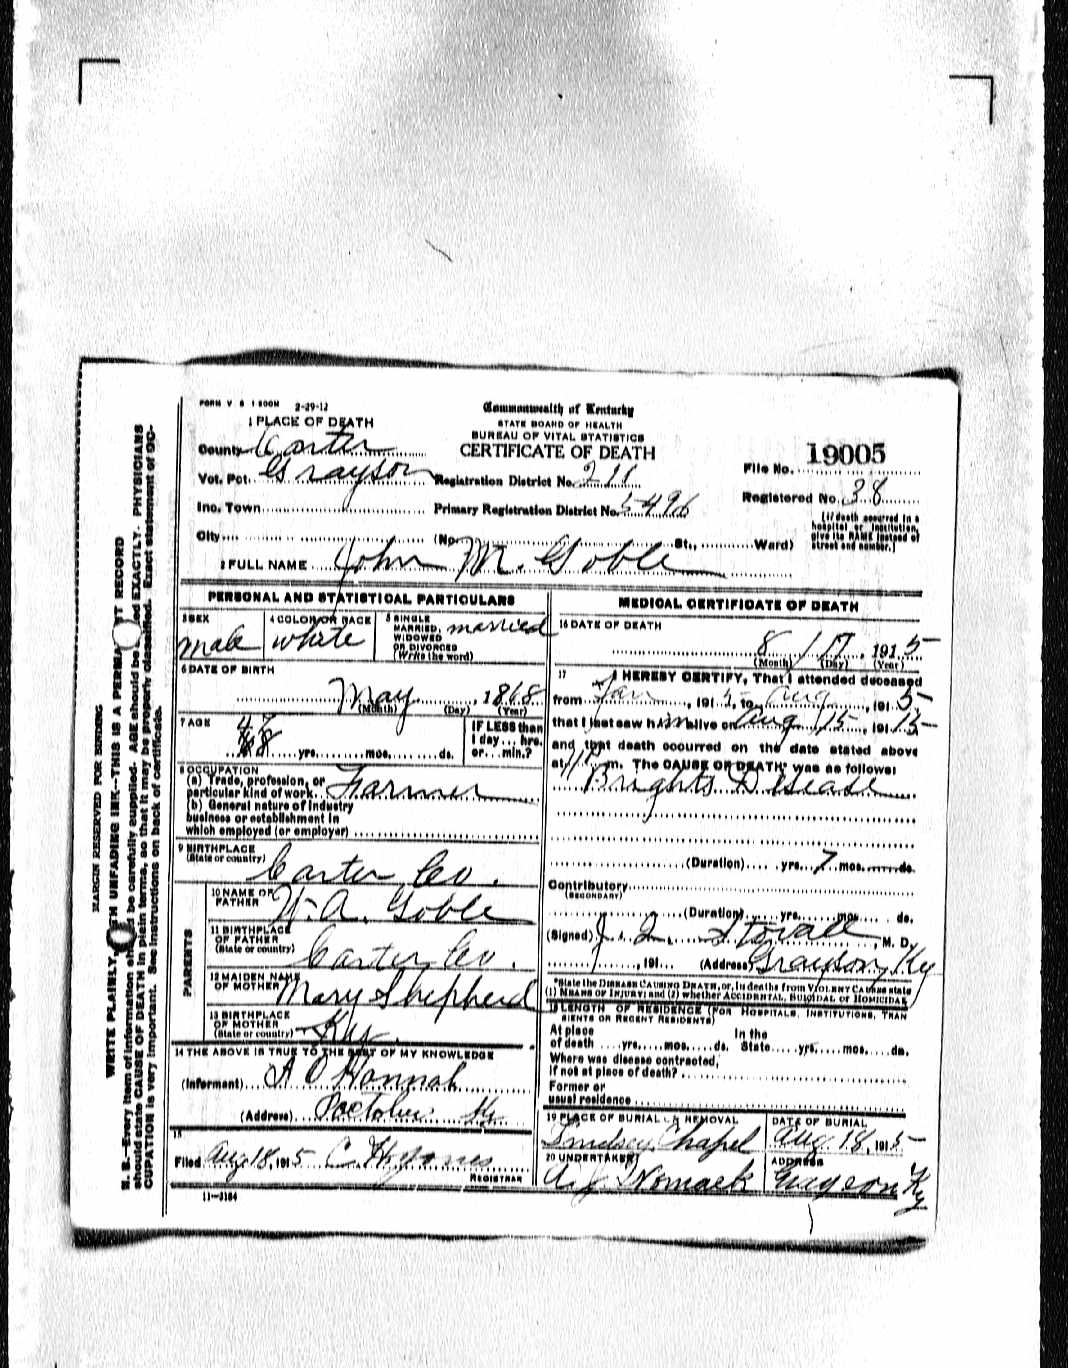 FORM V S 1 500M 2-29-12
Commonwealth of Kentucky
STATE BOARD OF HEALTH
BUREAU OF VITAL STATISTICS
CERTIFICATE OF DEATH
1 PLACE OF DEATH
County Carter
Vot. Pct. Grayson Registration District No. 211
Inc. Town Primary Registration District No. 5496
City (No. St., Ward)
File No. 19005
Registered No. 38
[If death occurred in a
hospital or institution,
give its NAME instead of
street and number.]
2 FULL NAME John M. Goble
PERSONAL AND STATISTICAL PARTICULARS
3 SEX
male
4 COLOR OR RACE
white
5 SINGLE
MARRIED,
WIDOWED
OR DIVORCED
(Write the word)
married
6 DATE OF BIRTH
May 1868
(Month) (Day) (Year)
7 AGE
47
yrs. mos. ds.
IF LESS than
1 day... hrs.
or... min.?
8 OCCUPATION
(a) Trade, profession, or
particular kind of work Farmer
(b) General nature of industry
business or establishment in
which employed (or employer)
9 BIRTHPLACE
(State or country)
Carter Co.
PARENTS
10 NAME OF
FATHER
W. A. Goble
11 BIRTHPLACE
OF FATHER
(State or country)
Carter Co.
12 MAIDEN NAME
OF MOTHER
Mary Shepherd
13 BIRTHPLACE
OF MOTHER
(State or country)
Ky.
14 THE ABOVE IS TRUE TO THE BEST OF MY KNOWLEDGE
(Informant) A O Hannah
(Address) Ky.
15
Filed Aug 18, 1915 C. H. Jones
REGISTRAR
11-3184
MEDICAL CERTIFICATE OF DEATH
16 DATE OF DEATH
8 / 17, 1915
(Month) (Day) (Year)
17 I HEREBY CERTIFY, That I attended deceased
from Jan, 1915, to Aug, 1915
that I last saw him alive on Aug 15, 1915
and that death occurred on the date stated above
at m. The CAUSE OF DEATH* was as follows:
Brights Disease
(Duration) yrs. 7 mos. ds.
Contributory
(SECONDARY)
(Duration) yrs. mos. ds.
(Signed) J. Q. Stovall, M. D.
, 191 (Address) Grayson, Ky
*State the DISEASE CAUSING DEATH, or, in deaths from VIOLENT CAUSES state
(1) MEANS OF INJURY; and (2) whether ACCIDENTAL, SUICIDAL or HOMICIDAL
18 LENGTH OF RESIDENCE (FOR HOSPITALS, INSTITUTIONS, TRAN
SIENTS OR RECENT RESIDENTS)
At place In the
of death yrs. mos. ds. State yrs. mos. ds.
Where was disease contracted,
if not at place of death?
Former or
usual residence
19 PLACE OF BURIAL OR REMOVAL
Lindsey Chapel
DATE OF BURIAL
Aug. 18, 1915
20 UNDERTAKER
A. J. Womack
ADDRESS
Grayson Ky
MARGIN RESERVED FOR BINDING
WRITE PLAINLY, WITH UNFADING INK—THIS IS A PERMANENT RECORD
N. B.—Every item of information should be carefully supplied. AGE should be stated EXACTLY. PHYSICIANS
should state CAUSE OF DEATH in plain terms, so that it may be properly classified. Exact statement of OC-
CUPATION is very important. See instructions on back of certificate.